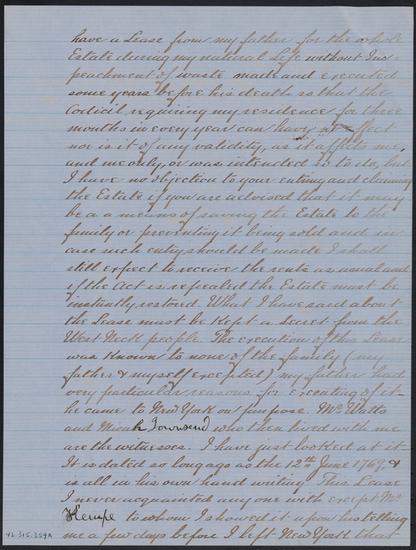 have a Lease from my father for the whole
Estate during my natural Life without Im-
peachment of waste made and executed
some years before his death so that the
Codicil requiring my residence for three
months in every year can have no effect
nor is it of any validity, as it affects me,
and me only, or was intended so to do, but
I have no objection to your entering and claiming
the Estate if you are advised that it may
be a a means of saving the Estate to the
family or preventing it being sold and in
case such entry should be made I shall
still expect to receive the rents as usual and
if the Act is repealed the Estate must be
instantly restored. What I have said about
the Lease must be kept a secret from the
West Neck people. The execution of this Lease
was known to none of the family (my
father & myself excepted) my father had
very particular reasons for executing of it—
he came to New York on purpose. Mr Watts
and Micah Townsend who then lived with me
are the witnesses. I have just looked at it.
It is dated so long ago as the 12th June 1769. &
is all in his own hand writing. This Lease
I never acquainted any one with except Mr
Kempe to whom I showed it upon his telling
me a few days before I left New York that